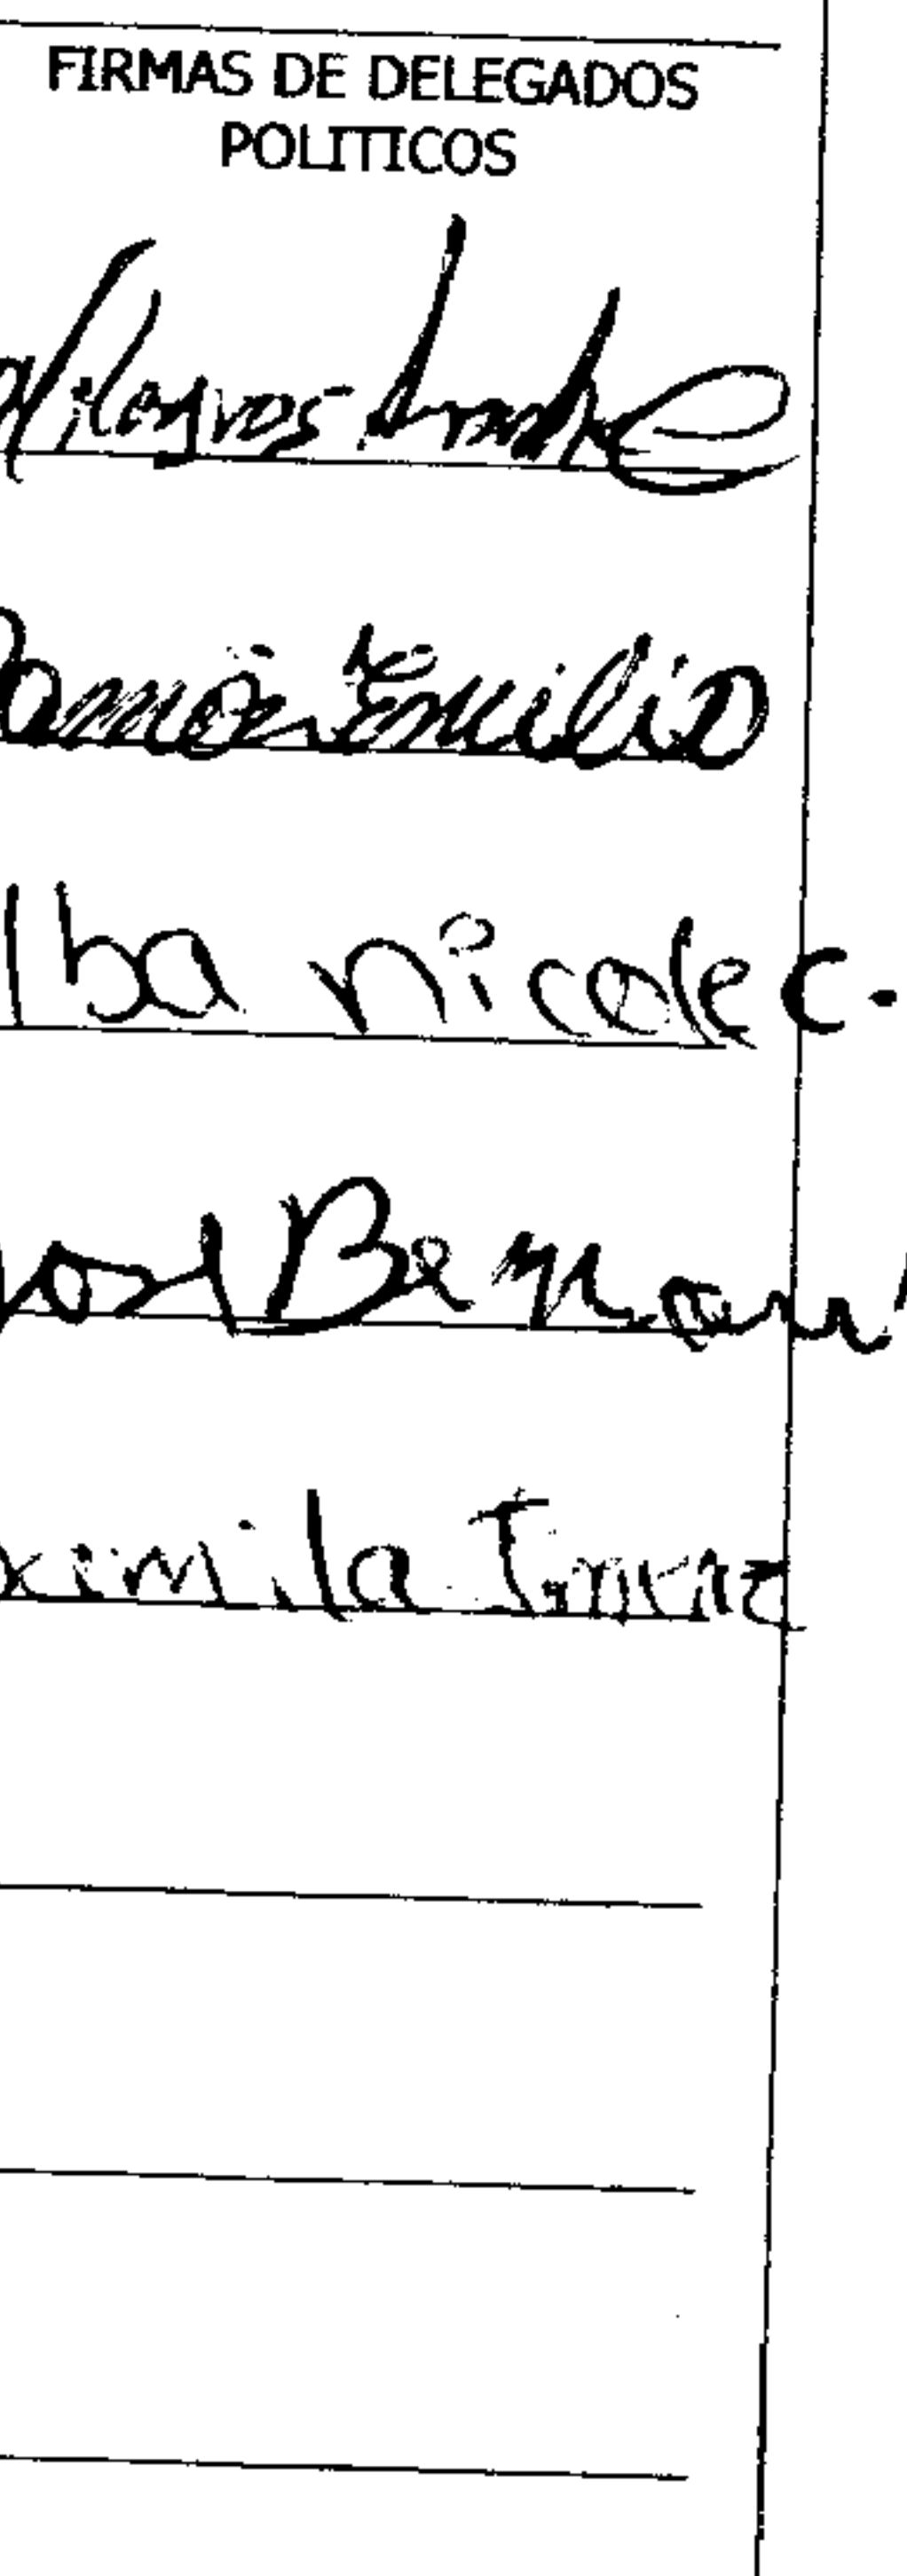 FIRMAS DE DELEGADOS
POLITICOS
Milagros
Ramón Emilio
lba nicole C.
José Bernar
ximila Jimenez